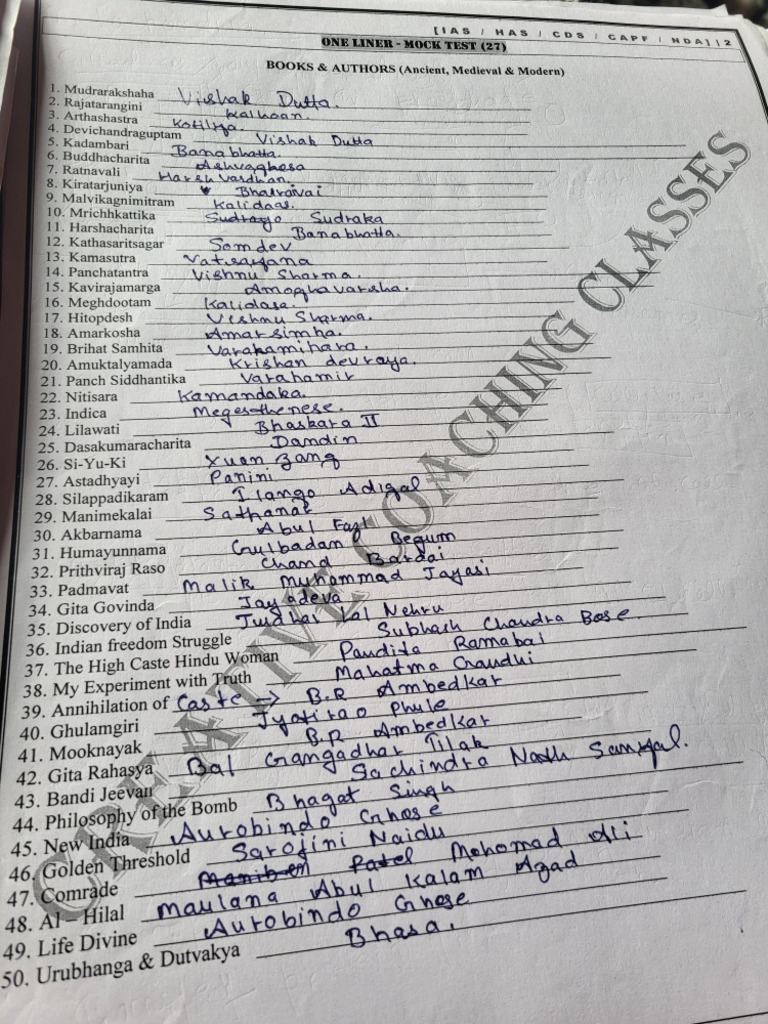 [IAS / HAS / CDS / CAPF / NDA] | 2
ONE LINER - MOCK TEST (27)
BOOKS & AUTHORS (Ancient, Medieval & Modern)
1. Mudrarakshaha Vishak Dutta.
2. Rajatarangini Kalhan.
3. Arthashastra Kotilya.
4. Devichandraguptam Vishak Dutta
5. Kadambari Banabhatta.
6. Buddhacharita Ashvaghosa
7. Ratnavali Harshvardhan.
8. Kiratarjuniya Bharaivai
9. Malvikagnimitram Kalidas.
10. Mrichhkattika Sudrago Sudraka
11. Harshacharita Banabhatta.
12. Kathasaritsagar Somdev
13. Kamasutra Vatsayana
14. Panchatantra Vishnu Sharma.
15. Kavirajamarga Amoghavarsha.
16. Meghdootam Kalidasa.
17. Hitopdesh Vishnu Sharma.
18. Amarkosha Amarsimha.
19. Brihat Samhita Varahamihara.
20. Amuktalyamada Krishan devraya.
21. Panch Siddhantika Varahamir
22. Nitisara Kamandaka.
23. Indica Megesthenese.
24. Lilawati Bhaskara II
25. Dasakumaracharita Dandin
26. Si-Yu-Ki Xuan Zang
27. Astadhyayi Panini
28. Silappadikaram Ilango Adigal
29. Manimekalai Sathanar
30. Akbarnama Abul Fazl
31. Humayunnama Gulbadan Begum
32. Prithviraj Raso Chand Bardai
33. Padmavat Malik Muhammad Jayasi
34. Gita Govinda Jayadeva
35. Discovery of India Lal Nehru
36. Indian freedom Struggle Subhash Chandra Bose.
37. The High Caste Hindu Woman Pandita Ramabai
38. My Experiment with Truth Mahatma Gandhi
39. Annihilation of Caste → B.R Ambedkar
40. Ghulamgiri Jyotirao Phule
41. Mooknayak B.R Ambedkar
42. Gita Rahasya Bal Gangadhar Tilak
43. Bandi Jeevan Sachindra Nath Sanyal.
44. Philosophy of the Bomb Bhagat Singh
45. New India Aurobindo Ghose
46. Golden Threshold Sarojini Naidu
47. Comrade Maniben Patel Mohomad Ali
48. Al – Hilal Maulana Abul Kalam Azad
49. Life Divine Aurobindo Ghose
50. Urubhanga & Dutvakya Bhasa.
CREATIVE COACHING CLASSES